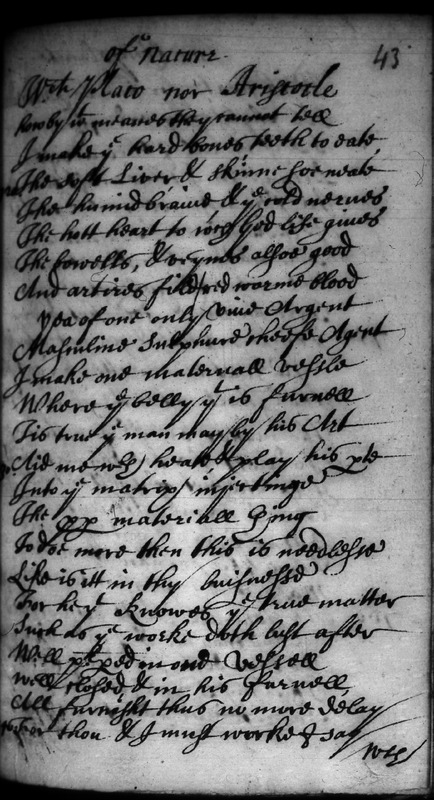 of nature. 43
Wth Plato nor Aristotle
howby wt meanes they cannot tell
I make ye hard bones teeth to eate
The soft Liver & skinne soe neate
The humid braine & ye cold nerves
The hott heart to God life gives
The bowells, & veynes alsoe good
And artires filld red warme blood
yea of one only vive Argent
Masculine Sulphure cheefe Agent
I make one maternall vessle
Where ye belly yt is furnell
Tis true yt man may by his Art
Aid me wth heate & play his pte
Into ye matrix injectinge
The pp materiall thing
To doe more then this is needlesse
Like is itt in thy buisnesse
For he yt knowes ye true matter
Such as ye worke doth lust after
Well pped in one vessell
Well closed & in his furnell
All furnisht thus no more delay
for thou & I must worke I say
wth